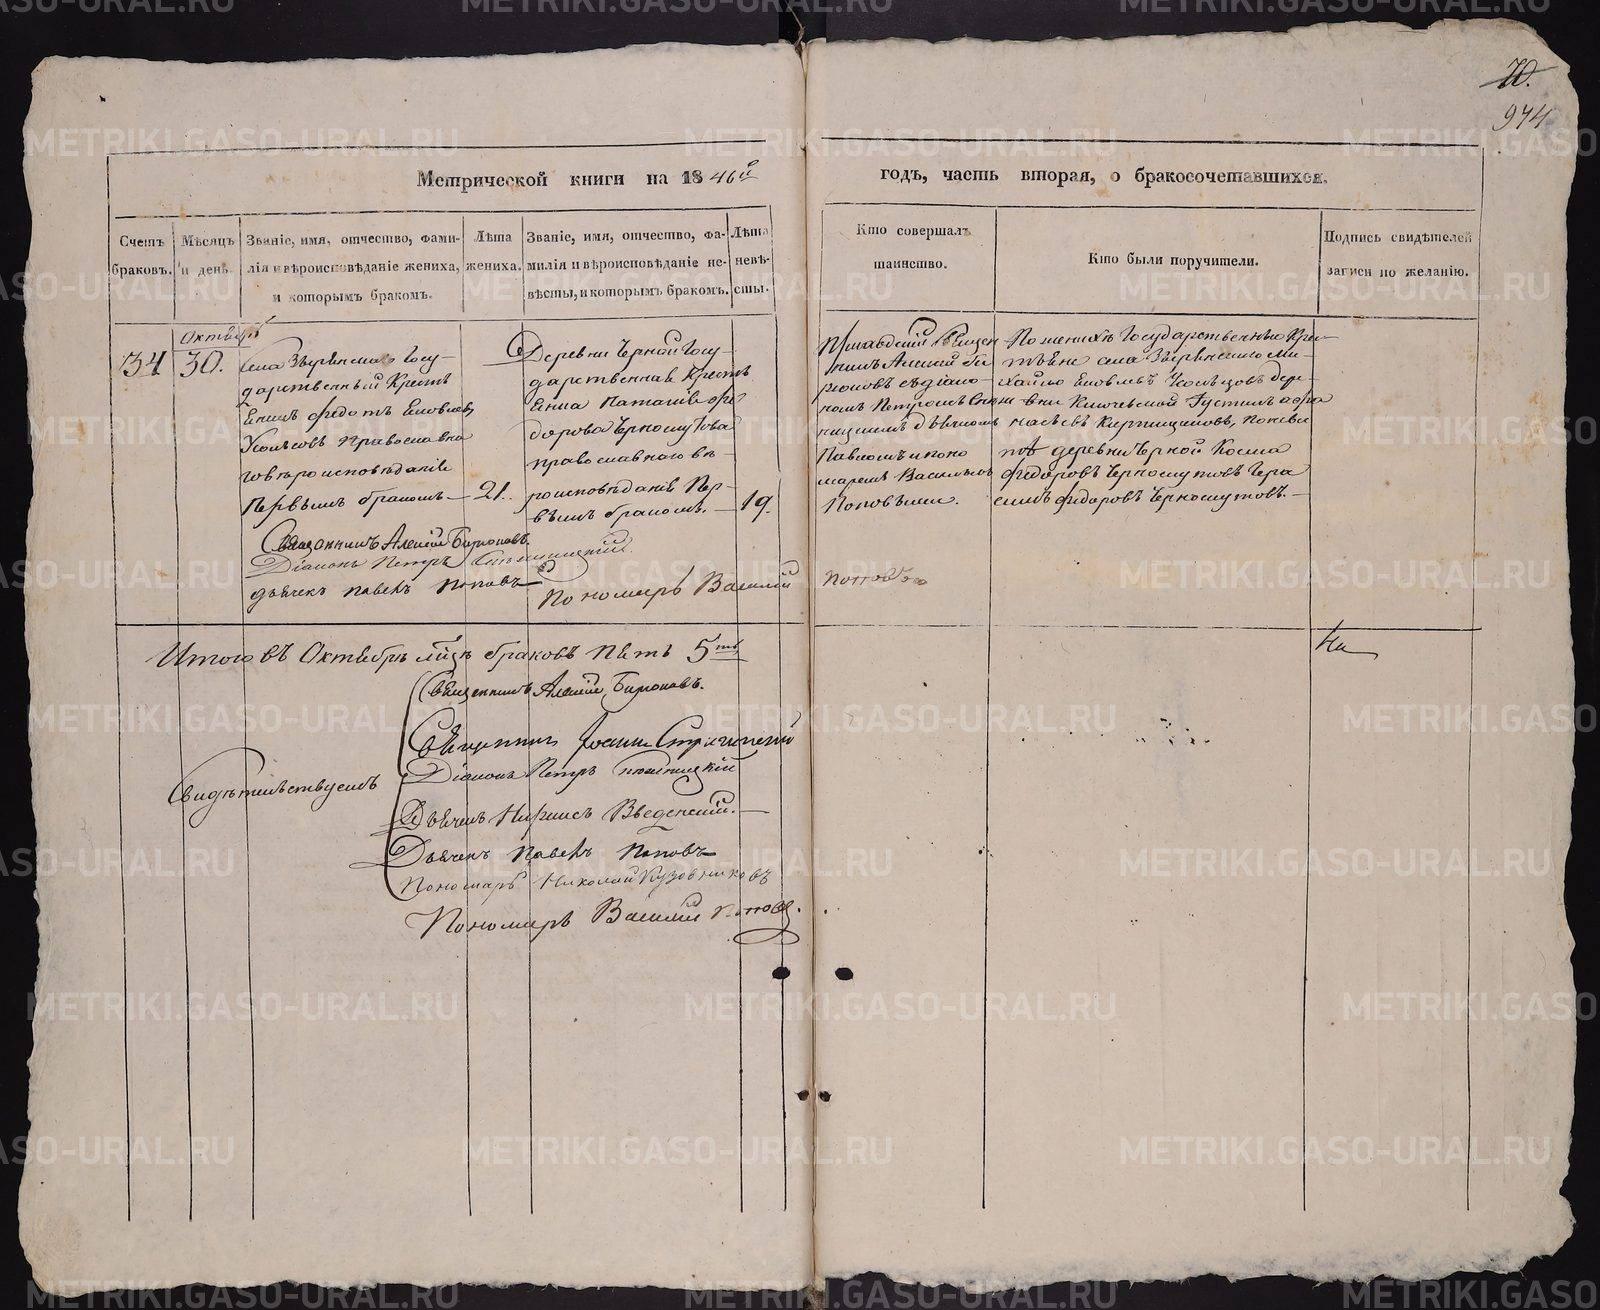 70.
974
Метрической книги на 1846й
годъ, часть вторая, о бракосочетавшихся.
Счетъ браковъ.
Мѣсяцъ и день.
Званіе, имя, отчество, фами-
лія и вѣроисповѣданіе жениха,
и которымъ бракомъ.
Лѣта жениха.
Званіе, имя, отчество, фа-
милія и вѣроисповѣданіе не-
вѣсты, и которымъ бракомъ.
Лѣта невѣ-
сты.
Кто совершалъ
таинство.
Кто были поручители.
Подпись свидѣтелей
записи по желанію.
34
Октября
30.
Села Зырянскаго Госу-
дарственный Кресть
янинъ Федотъ Яковлевъ
Усольцовъ Православна
го вѣроисповѣданія
Первымъ бракомъ
21.
Деревни Черной Госу-
дарственная Кресть
янка Наталія Фе
дорова Черноскутова
православнаго вѣ-
роисповѣданія Пер-
вымъ бракомъ.
19.
Приходскій Священ
никъ Алексій Би
рюковъ съ діако-
номъ Петромъ
дьячкомъ
Павломъ и поно
маремъ Василіемъ
Поповыми.
По женихѣ Государственные Крес-
тьяне села Зырянскаго Ми-
хайло Яковлевъ Усольцовъ дер-
вни Ключевской Густинъ Афа
насьевъ Кирпищиковъ, по невѣс
тѣ деревни Черной Косма
Федоровъ Черноскутовъ Гера
симъ Федоровъ Черноскутовъ.
Священникъ Алексій Бирюковъ.
Діаконъ Петръ
дьячекъ Павелъ Поповъ
Пономарь Василій Поповъ
Итого въ Октябрѣ м-цѣ браковъ пять 5ть
На
Свидѣтельствуемъ
Священникъ Алексій Бирюковъ.
Священникъ Іоаннъ
Діаконъ Петръ
Дьячекъ Введенскій.
Дьячекъ Павелъ Поповъ
Пономарь Николай Кузовниковъ
Пономарь Василій Поповъ.
METRIKI.GASO-URAL.RU